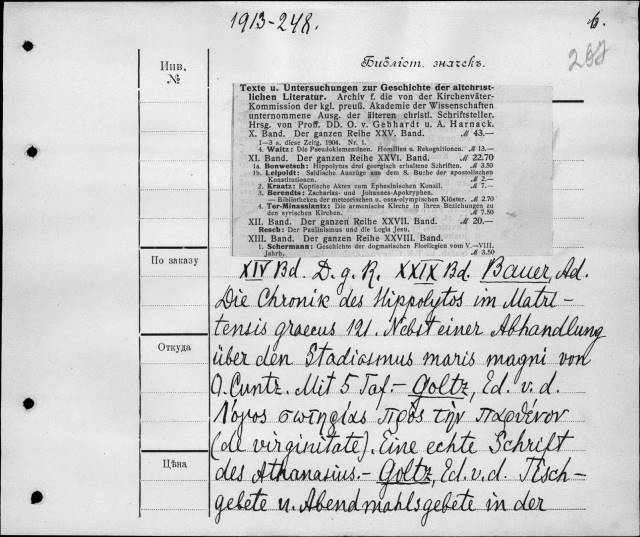 1913-248.
6.
Инв.
№
Библіот. значекъ.
Texte u. Untersuchungen zur Geschichte der altchrist-
lichen Literatur. Archiv f. die von der Kirchenväter-
Kommission der kgl. preuß. Akademie der Wissenschaften
unternommene Ausg. der älteren christl. Schriftsteller.
Hrsg. von Proff. DD. O. v. Gebhardt u. A. Harnack.
X. Band. Der ganzen Reihe XXV. Band. ℳ 43.—
1—3 s. diese Zeitg. 1904. Nr. 1.
4. Waitz: Die Pseudoklementinen. Homilien u. Rekognitionen. ℳ 13.—
XI. Band. Der ganzen Reihe XXVI. Band. ℳ 22.70
1a. Bonwetsch: Hippolytus drei georgisch erhaltene Schriften. ℳ 3.50
1b. Leipoldt: Saïdische Auszüge aus dem 8. Buche der apostolischen
Konstitutionen. ℳ 2.—
2. Kraatz: Koptische Akten zum Ephesinischen Konzil. ℳ 7.—
3. Berendts: Zacharias- und Johannes-Apokryphen.
— Bibliotheken der meteorischen u. ossa-olympischen Klöster. ℳ 2.70
4. Ter-Minassiantz: Die armenische Kirche in ihren Beziehungen zu
den syrischen Kirchen. ℳ 7.50
XII. Band. Der ganzen Reihe XXVII. Band. ℳ 20.—
Resch: Der Paulinismus und die Logia Jesu.
XIII. Band. Der ganzen Reihe XXVIII. Band.
1. Schermann: Geschichte der dogmatischen Florilegien vom V.—VIII.
Jahrh. ℳ 3.50
По заказу
XIV Bd. D. g. R. XXIX Bd. Bauer, Ad.
Die Chronik des Hippolytos im Matri-
tensis graecus 121. Nebst einer Abhandlung
Откуда
über den Stadiasmus maris magni von
O. Cuntz. Mit 5 Taf.— Goltz, Ed. v. d.
Λόγος σωτηρίας πρὸς τὴν παρθένον
(de virginitate). Eine echte Schrift
Цѣна
des Athanasius.— Goltz, Ed. v. d. Tisch-
gebete u. Abendmahlsgebete in der